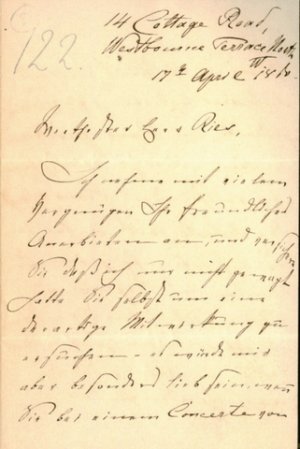 122
14 Cottage Road,
Westbourne Terrace North
17th April
Werthester Herr Ries,
Ich nehme mit vielem
Vergnügen Ihr freundliches
Anerbieten an, und versichere
Sie daß ich nur nicht gewagt
hatte Sie selbst um eine
derartige Mitwirkung zu
ersuchen – es würde mir
aber besonders lieb sein, wenn
Sie bei einem Concerte von